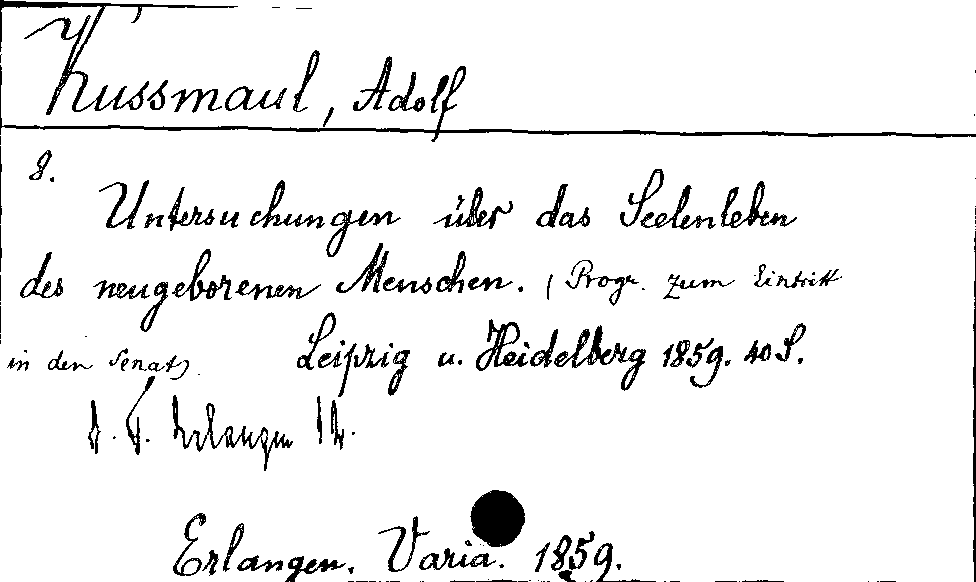 Kussmaul, Adolf
8.
Untersuchungen über das Seelenleben
des neugeborenen Menschen. (Progr. zum Eintritt
in den Senat). Leipzig u. Heidelberg 1859. 40 S.
Erlangen
Erlangen. Varia. 1859.